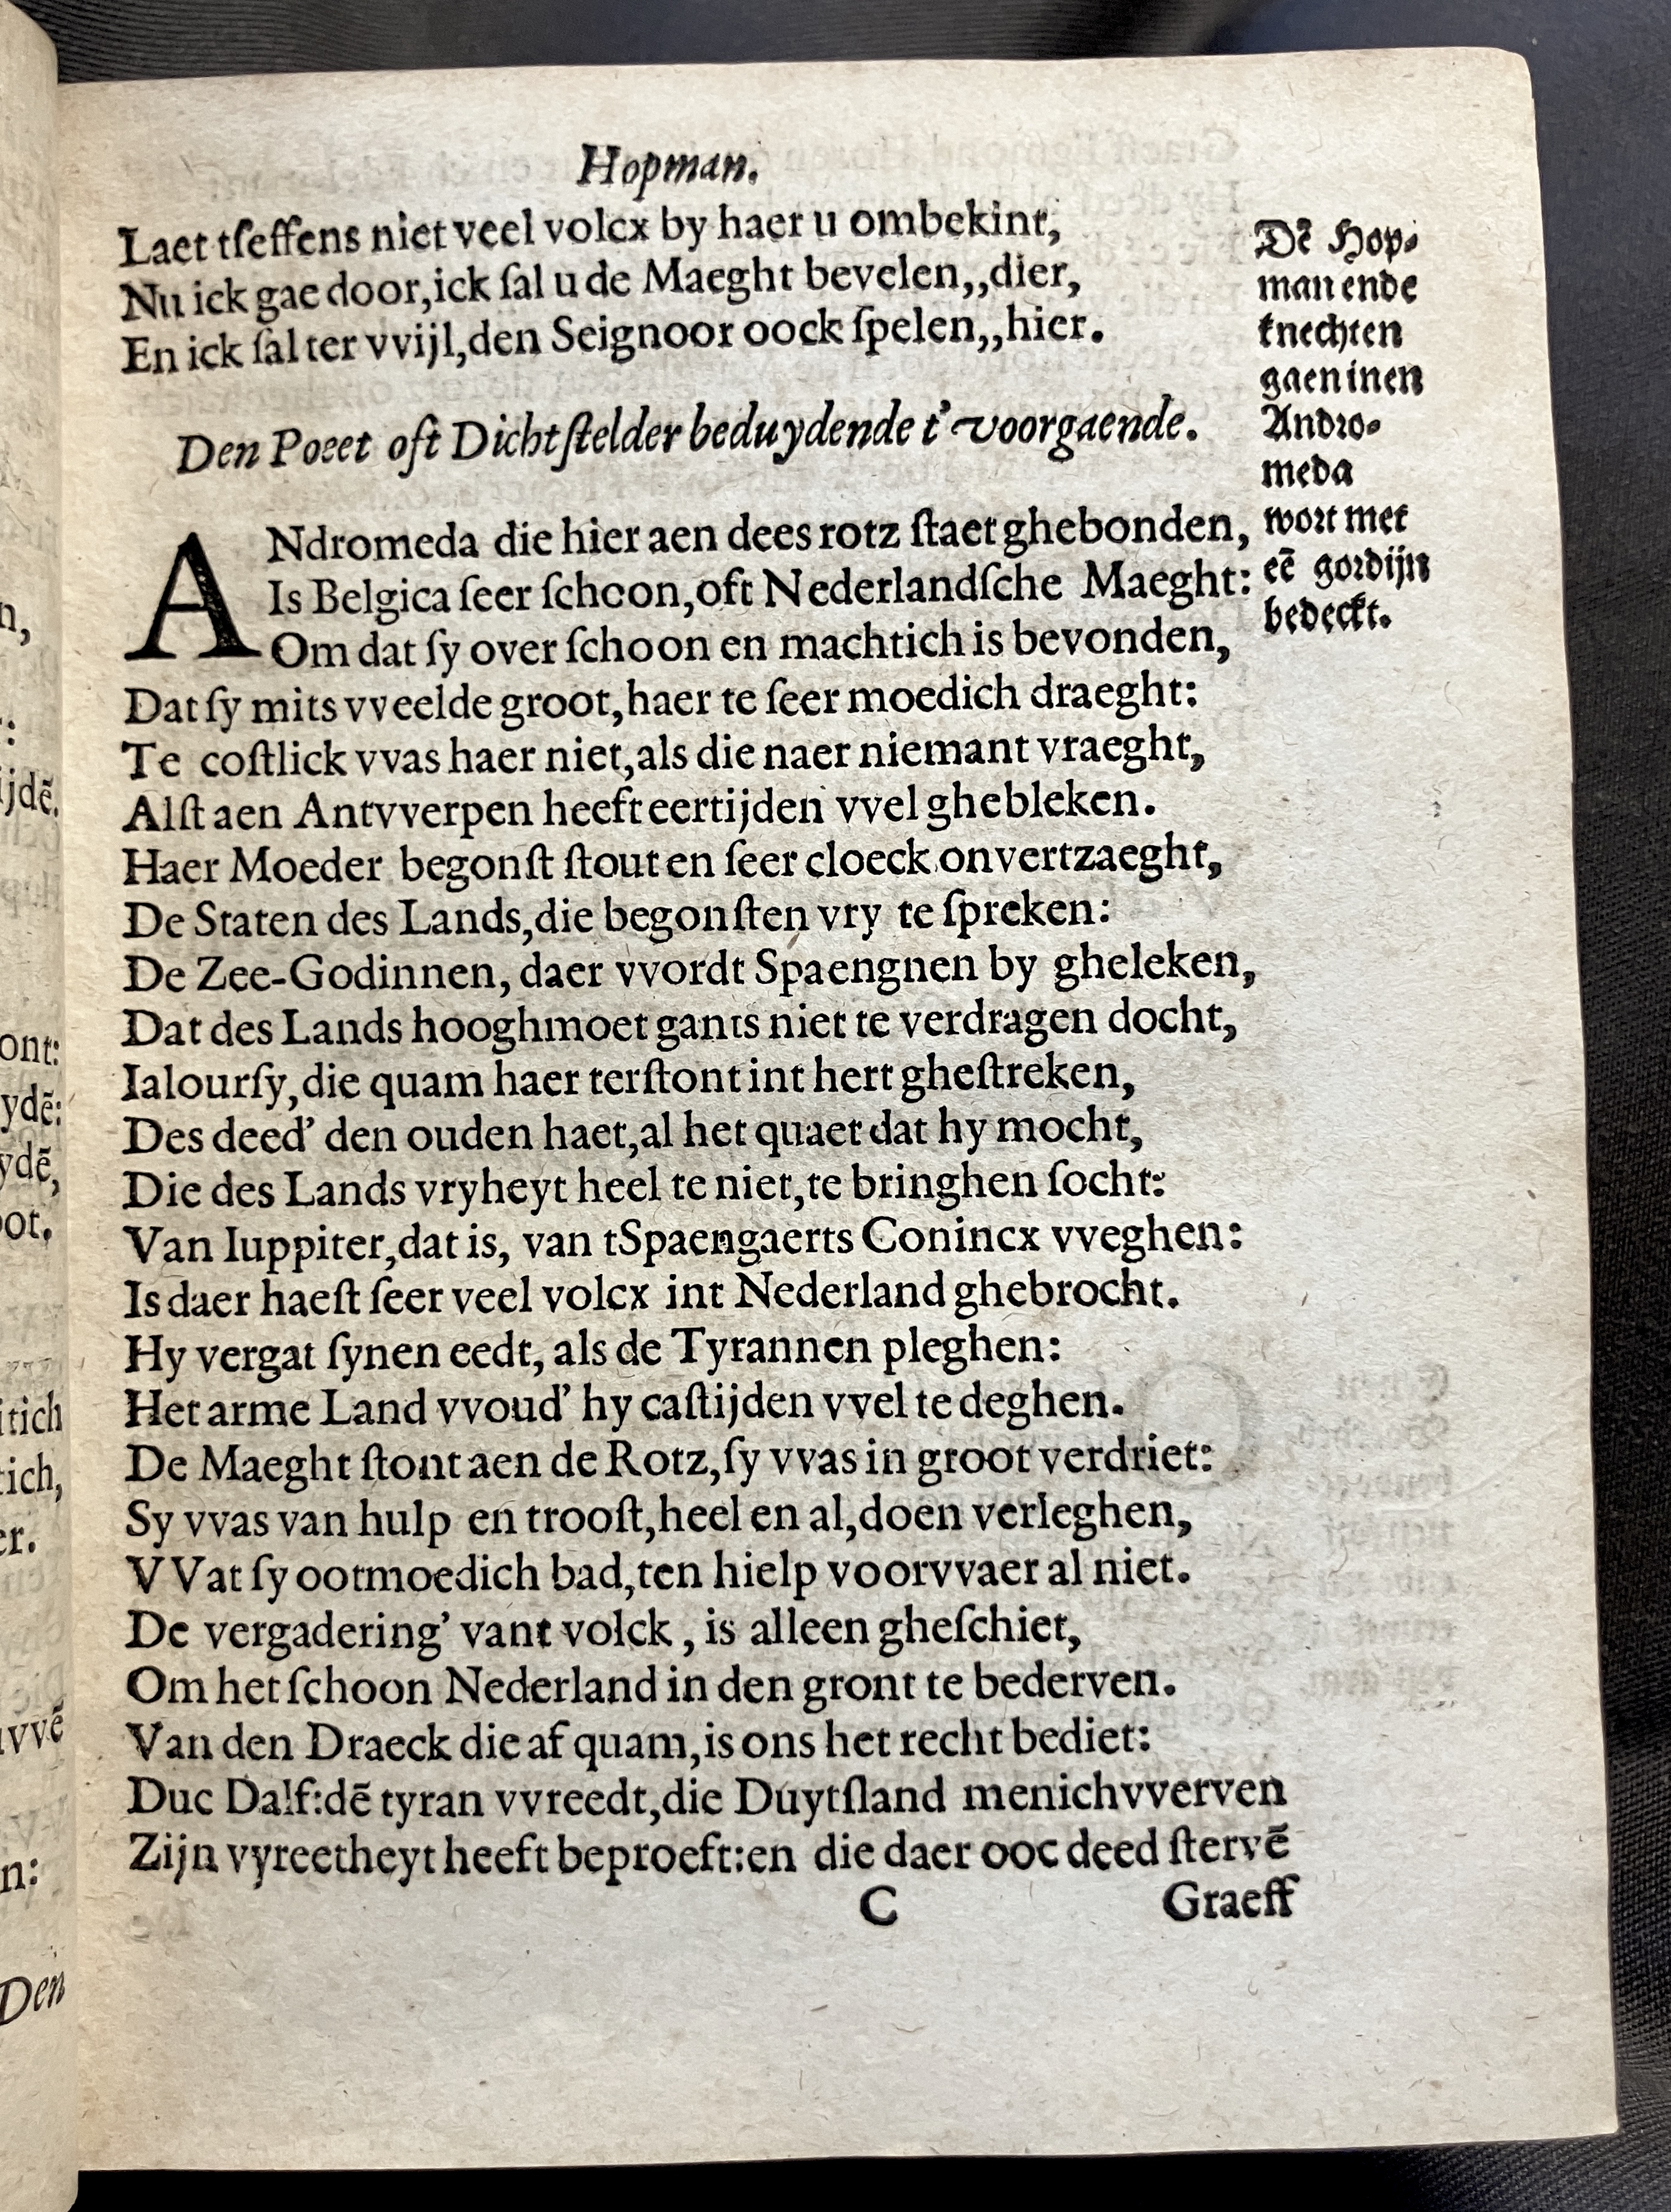 Hopman.
Laet tſeffens niet veel volcx by haer u ombekint,
Nu ick gae door,ick ſal u de Maeght bevelen,,dier,
En ick ſal ter vvijl,den Seignoor oock ſpelen,,hier.
Dē Hop-
man ende
knechten
gaen inen
Andro-
meda
wort met
eē gordijn
bedeckt.
Den Poëet oft Dichtſtelder beduydende t'voorgaende.
ANdromeda die hier aen dees rotz ſtaet ghebonden,
Is Belgica ſeer ſchoon,oft Nederlandſche Maeght:
Om dat ſy over ſchoon en machtich is bevonden,
Dat ſy mits vveelde groot,haer te ſeer moedich draeght:
Te coſtlick vvas haer niet,als die naer niemant vraeght,
Alſt aen Antvverpen heeft eertijden vvel ghebleken.
Haer Moeder begonſt ſtout en ſeer cloeck onvertzaeght,
De Staten des Lands,die begonſten vry te ſpreken:
De Zee-Godinnen, daer vvordt Spaengnen by gheleken,
Dat des Lands hooghmoet gants niet te verdragen docht,
Ialourſy,die quam haer terſtont int hert gheſtreken,
Des deed' den ouden haet,al het quaet dat hy mocht,
Die des Lands vryheyt heel te niet,te bringhen ſocht:
Van Iuppiter,dat is, van tSpaengaerts Conincx vveghen:
Is daer haeſt ſeer veel volcx int Nederland ghebrocht.
Hy vergat ſynen eedt, als de Tyrannen pleghen:
Het arme Land vvoud' hy caſtijden vvel te deghen.
De Maeght ſtont aen de Rotz,ſy vvas in groot verdriet:
Sy vvas van hulp en trooſt,heel en al,doen verleghen,
VVat ſy ootmoedich bad,ten hielp voorvvaer al niet.
De vergadering' vant volck, is alleen gheſchiet,
Om het ſchoon Nederland in den gront te bederven.
Van den Draeck die af quam,is ons het recht bediet:
Duc Dalf:dē tyran vvreedt,die Duytſland menichvverven
Zijn vyreetheyt heeft beproeft:en die daer ooc deed ſtervē
C
Graeff